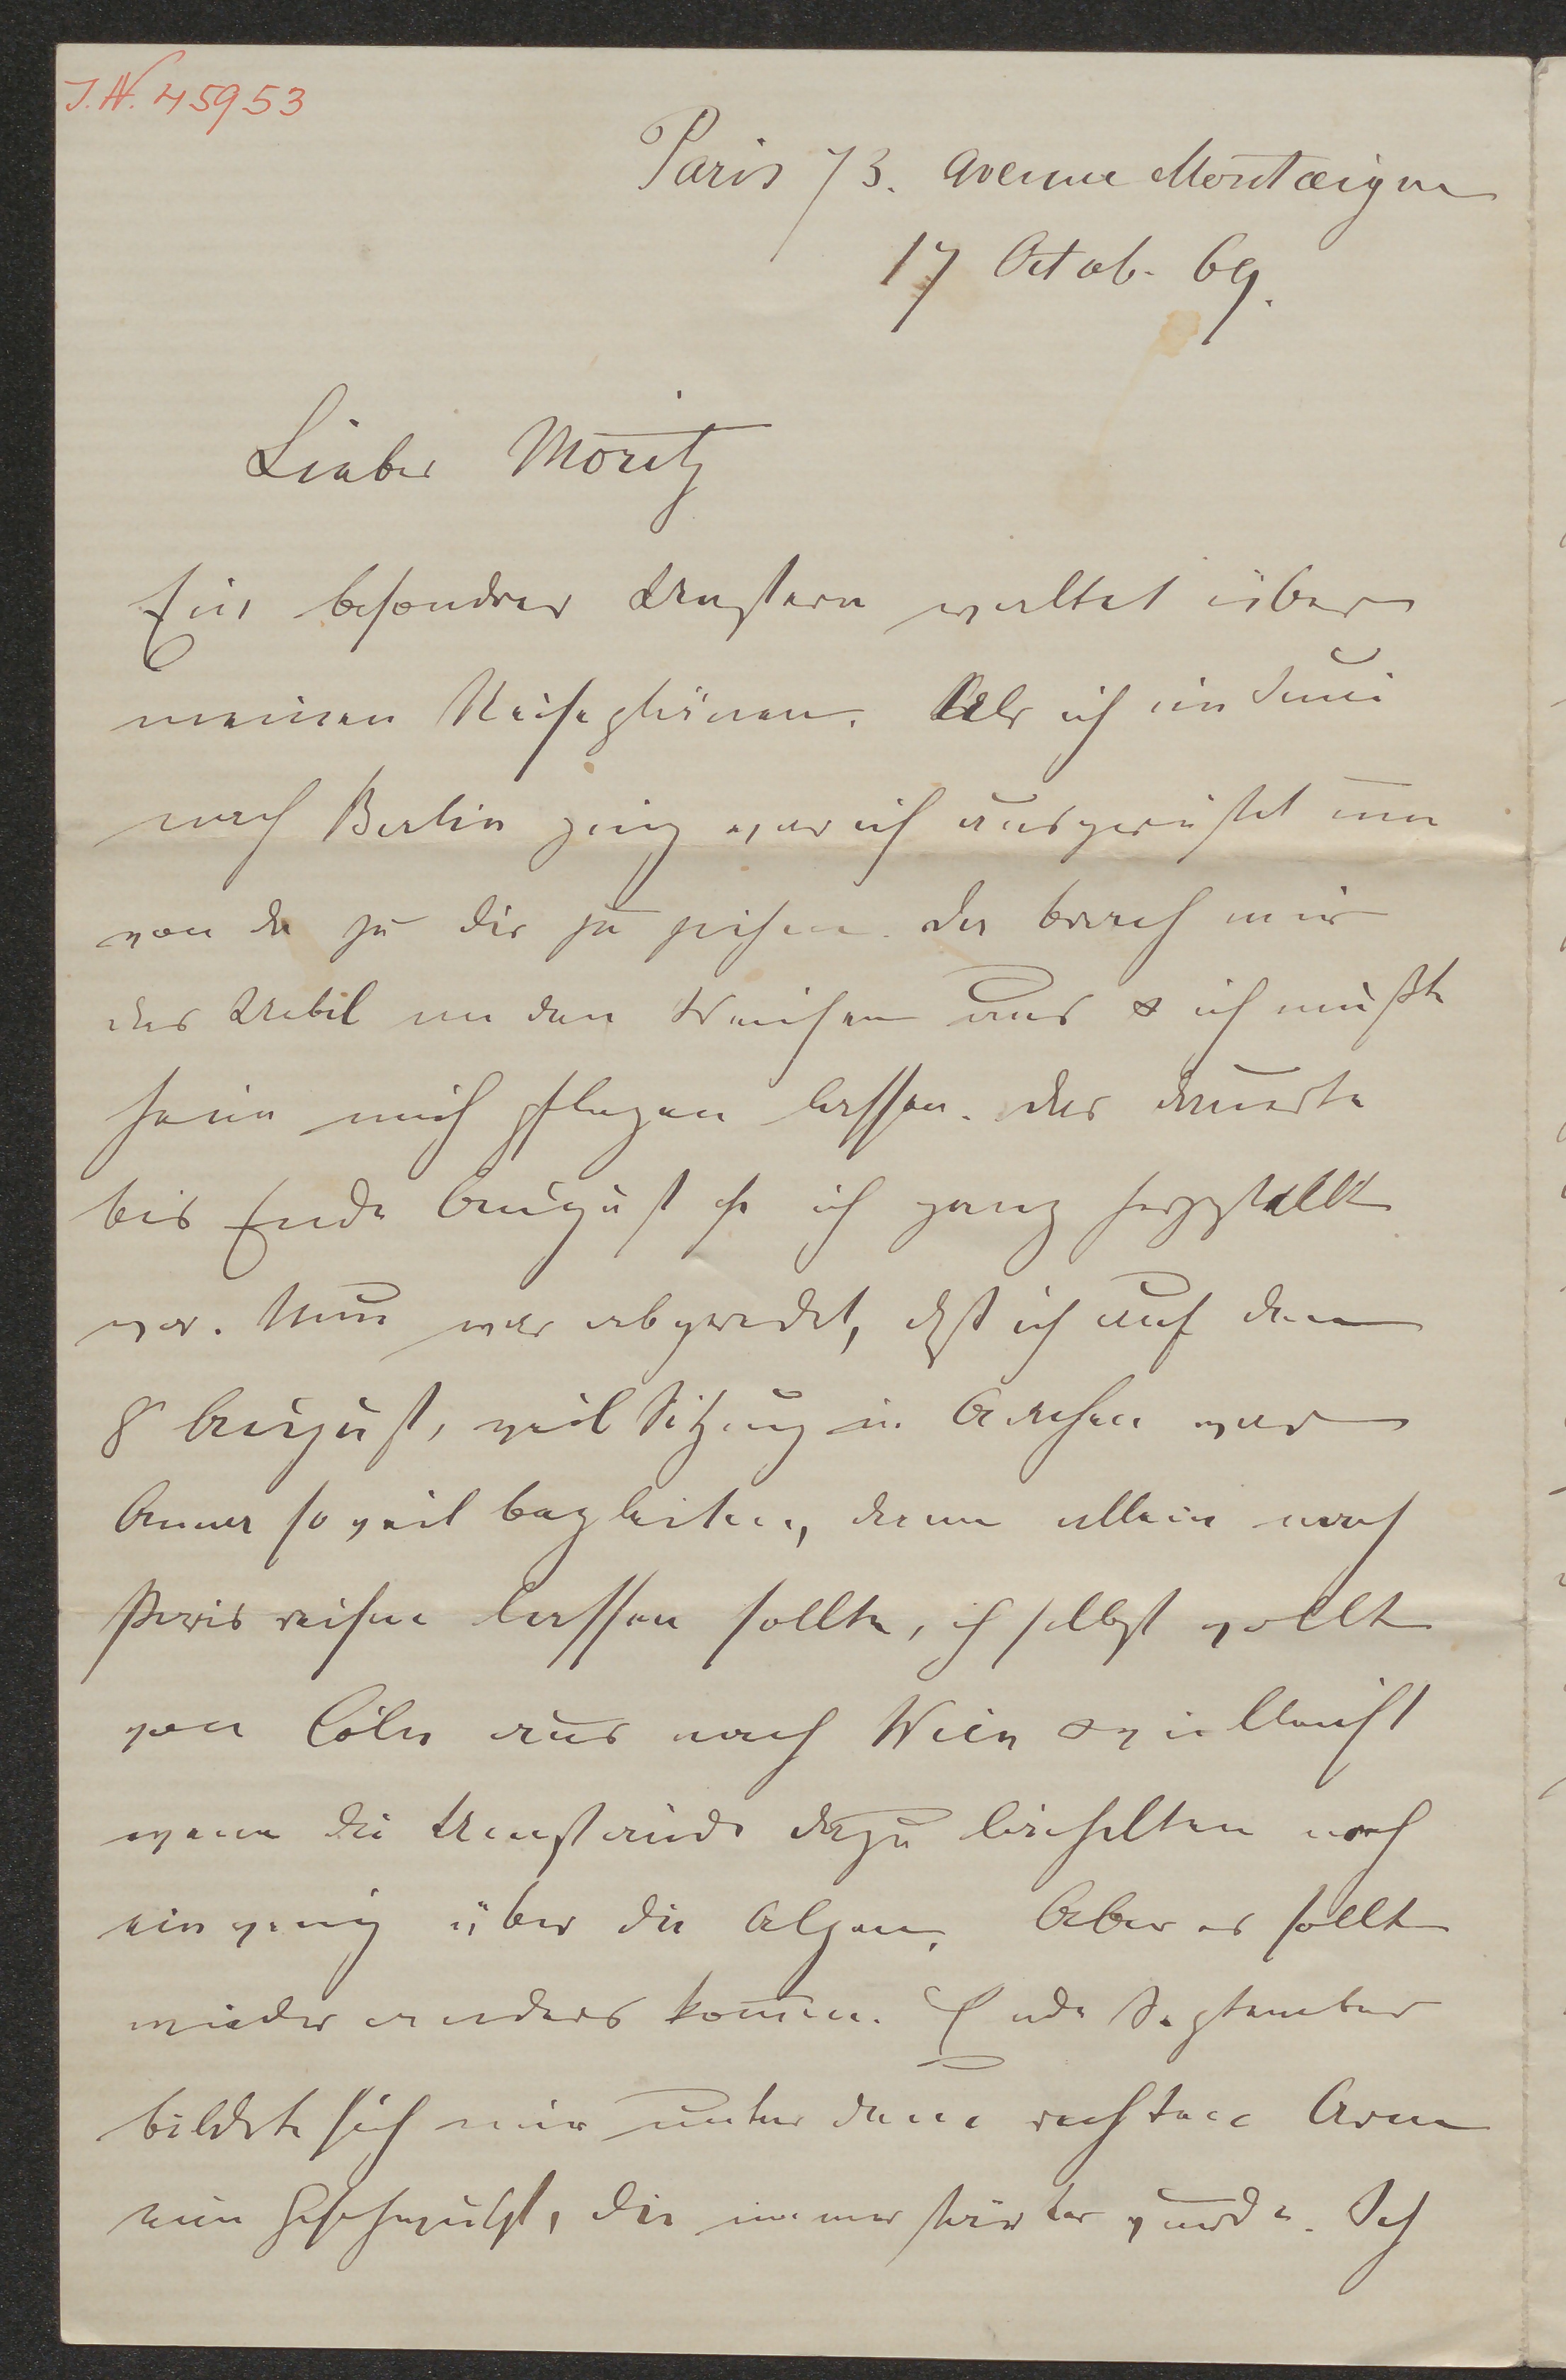 J.N. 45953
Paris 73. Avenue Montaigne
17 Octob. 69.
Lieber Moritz
Ein besondrer Unstern waltet über
meinen Reiseplänen. Als ich im Juni
nach Berlin ging war ich ausgerüstet um
von da zu dir zu gehen. Da brach mir
das Uebel an den aus & ich mußte
mich pflegen lassen. Das dauerte
bis Ende August wo ich ganz hergestellt
war. Nun war abgeredet, daß ich auf den
8 August, weil Sitzung in Aachen war
Anna so weit begleiten, dann allein nach
Paris reisen lassen sollte, ich selbst wollte
von Cöln aus nach Wien & vielleicht
wenn die Umstände dazu noch
ein wenig über die Alpen. Aber es sollte
wieder anders kommen. Ende September
bildete sich mir unter dem rechten Arm
eine Geschwulst, die immer stärker wurde. Ich